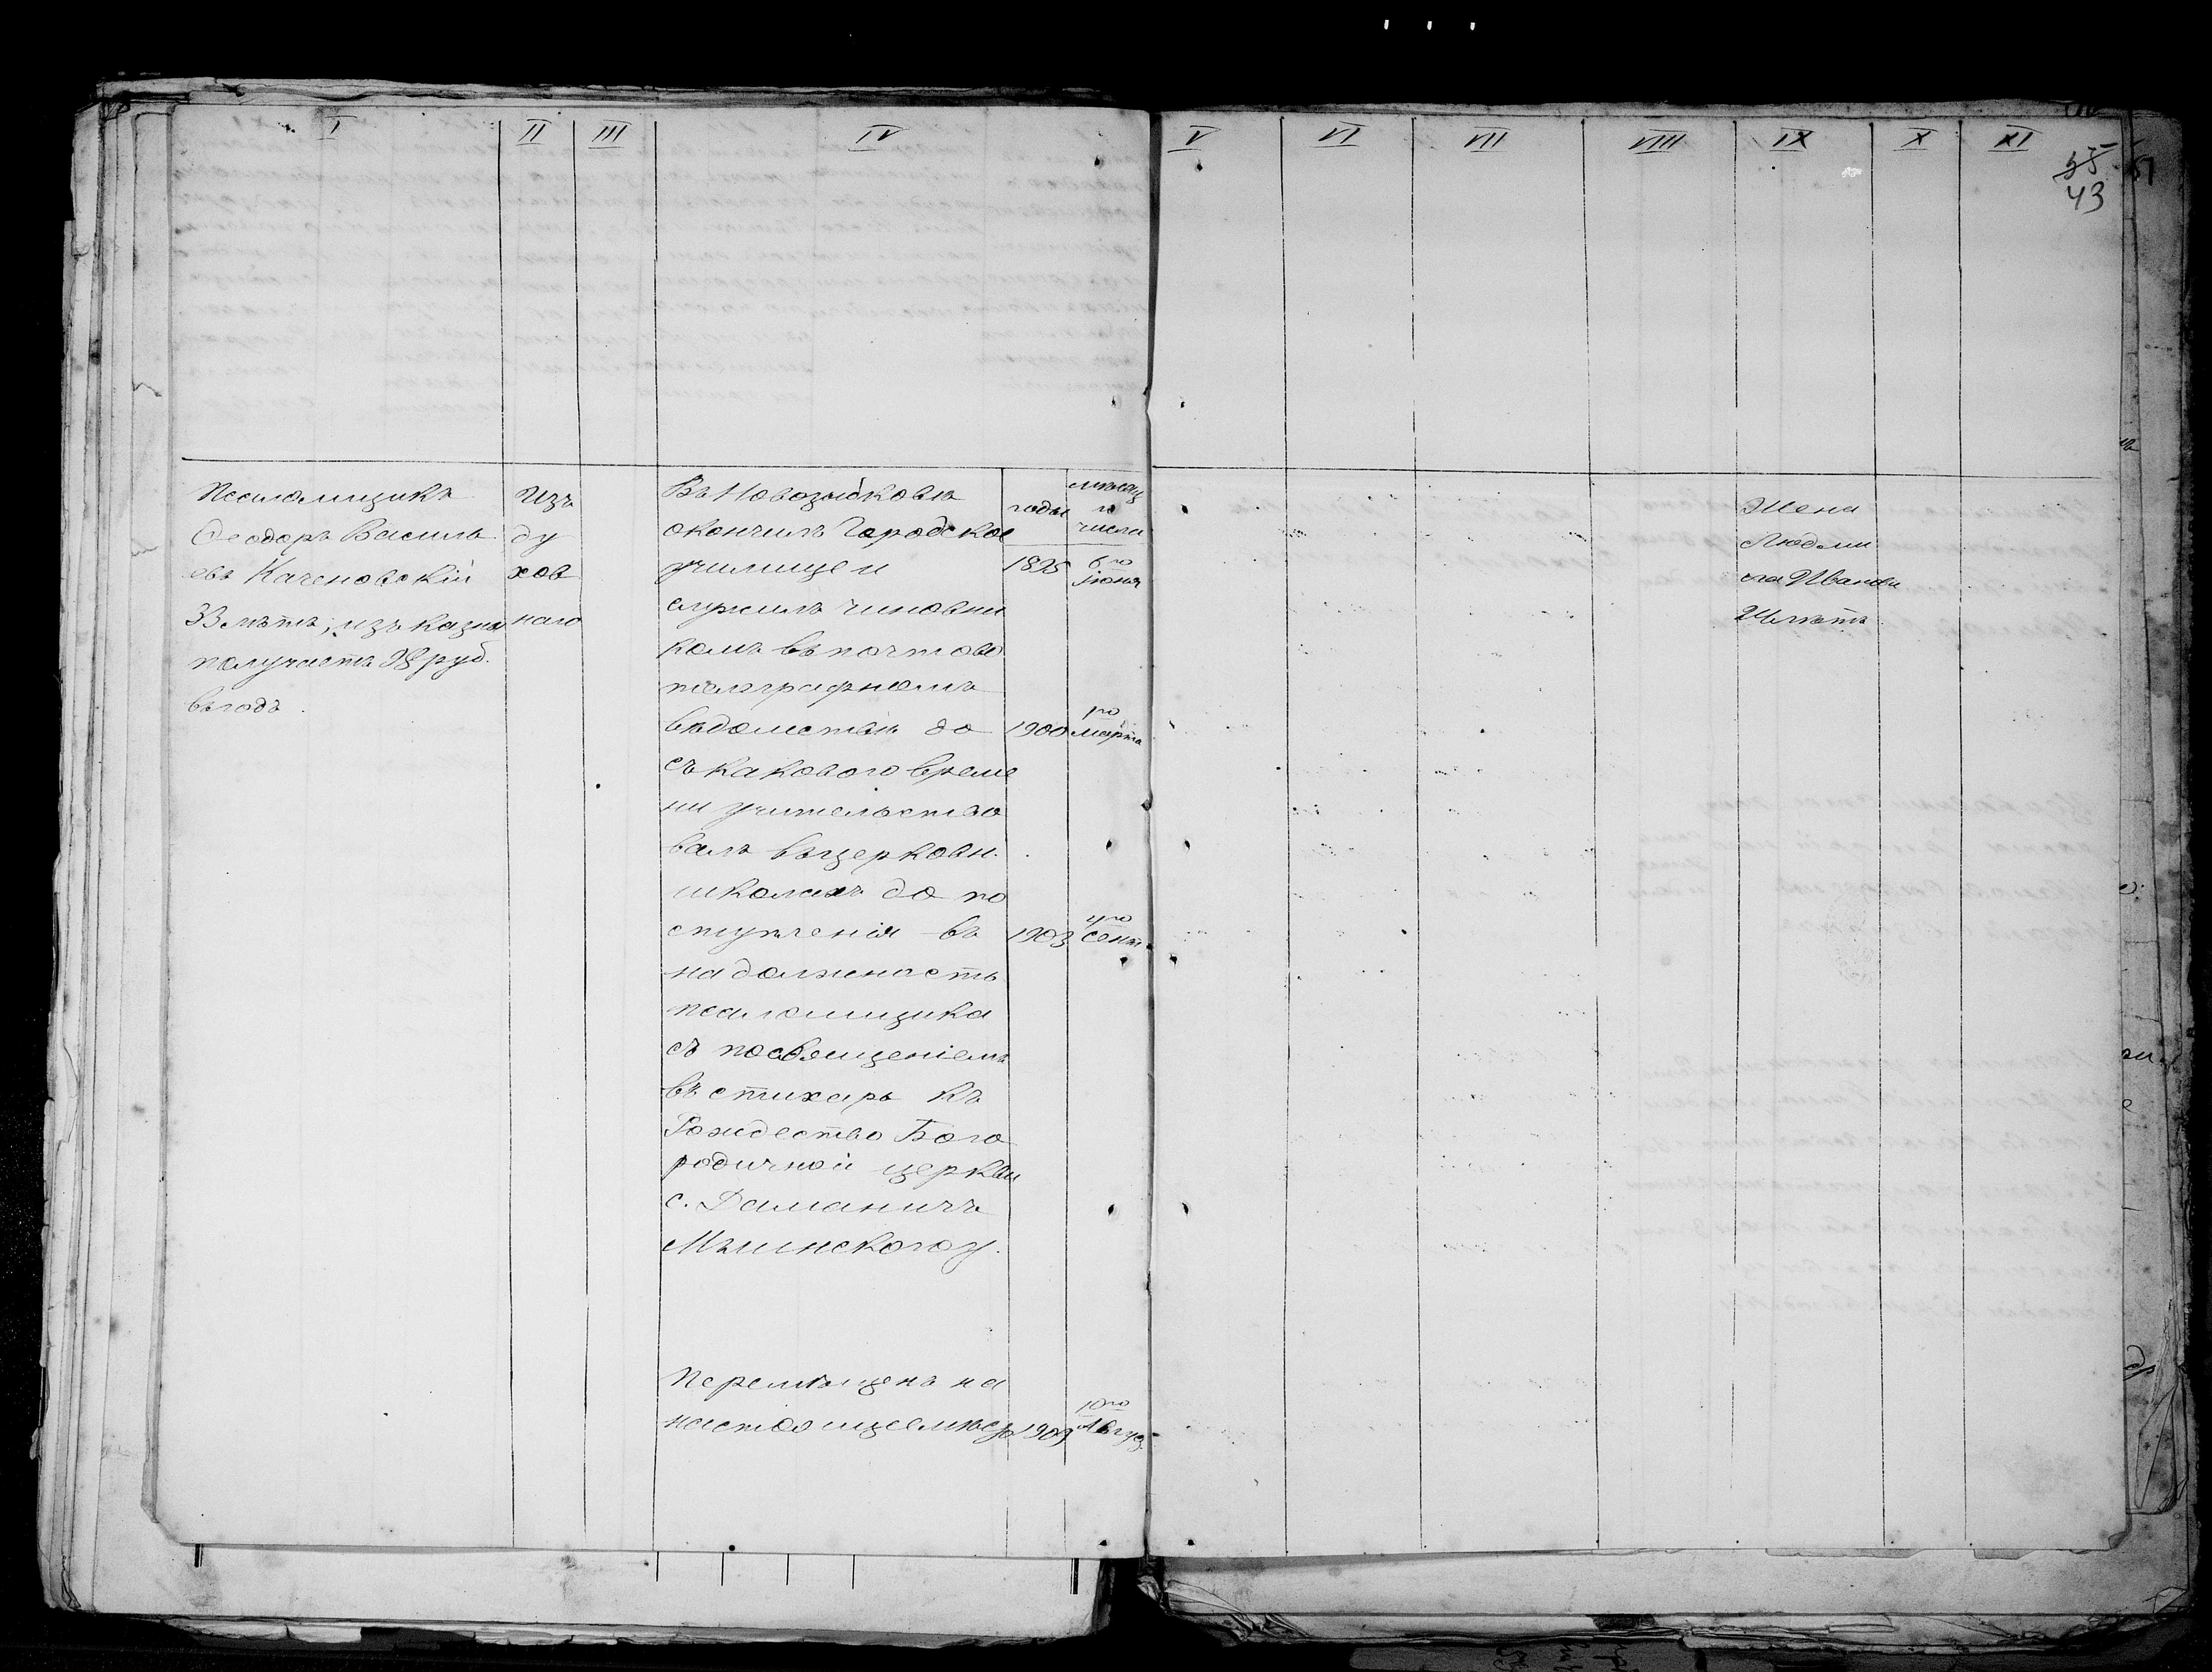 I II III IV V VI VII VIII IX X XI
55
43
Псаломщикъ
Ѳеодоръ Василь
евъ Каченовскій
33 лѣтъ, изъ казны
получаетъ 98 руб.
въ годъ.
Изъ
ду
хов
наго
Въ Новозыбковѣ
окончилъ Городское
училище и
служилъ чиновни
комъ въ почтово
телеграфномъ
вѣдомствѣ до
съ каковаго време
ни учительство
валъ въ церковн.
школахъ до по
ступленія въ
на должность
псаломщика
съ посвященіемъ
въ стихарь къ
Рождество Бого
родичной церкви
с. Даманичъ
Мглинскаго у.
Перемѣщенъ на
настоящее мѣсто
годы
мѣсяц
и
числа
1895 6го Іюня
1900 1го Марта
1903 4го Сент.
1909 10го Авгус.
Жена
Людми
ла Иванова
лѣтъ